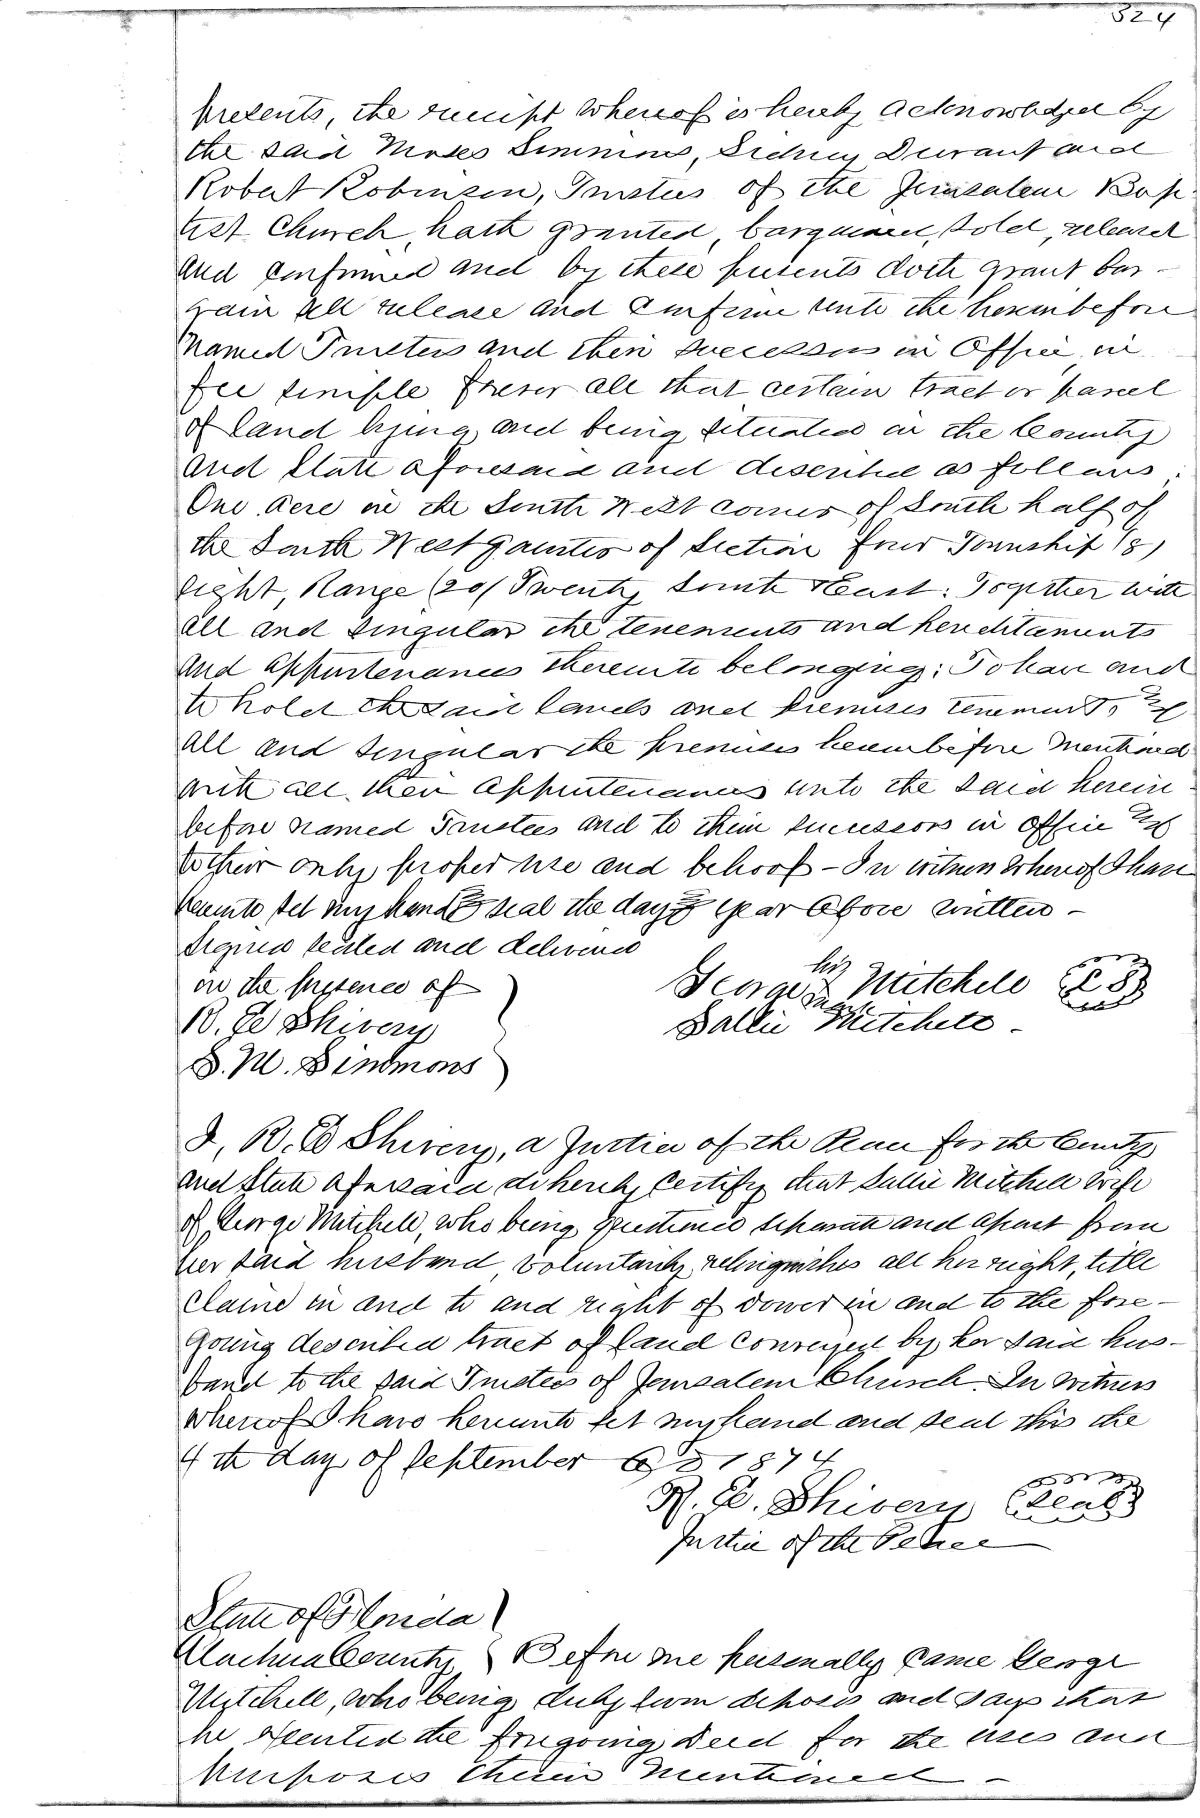 324
presents, the receipt whereof is hereby acknowledged by
the said Moses Simmons, Sidney Durant and
Robert Robinson, Trustees of the Jerusalem Bap-
tist Church, hath granted, bargained, sold, released
and confirmed and by these presents doth grant bar-
gain sell release and confirm unto the hereinbefore
named Trustees and their successors in Office in
fee simple forever all that certain tract or parcel
of land lying and being situated in the County
and State aforesaid and described as follows:
One acre in the South West corner of South half of
the South West quarter of Section four Township (8)
eight, Range (20) Twenty South & East: Together with
all and singular the tenements and hereditaments
and appurtenances thereunto belonging: To have and
to hold the said lands and premises tenements, &
all and singular the premises hereinbefore mentioned
with all their appurtenances unto the said herein-
before named Trustees and to their successors in office &
to their only proper use and behoof - In witness whereof I have
hereunto set my hand & seal the day & year above written -
Signed sealed and delivered
in the presence of
R. E. Shivery
S. M. Simmons
George his mark Mitchell L S
Sallie Mitchell -
I, R. E Shivery, a Justice of the Peace for the County
and State aforesaid do hereby certify that Sallie Mitchell wife
of George Mitchell, who being questioned separate and apart from
her said husband, voluntarily relinquishes all her right, title
claim in and to and right of dower in and to the fore-
going described tract of land conveyed by her said hus-
band to the said Trustees of Jerusalem Church. In witness
whereof I have hereunto set my hand and seal this the
4th day of September A D 1874
R. E. Shivery Seal
Justice of the Peace
State of Florida
Alachua County Before me personally came George
Mitchell, who being duly sworn deposes and says that
he executed the foregoing Deed for the uses and
purposes therein mentioned -